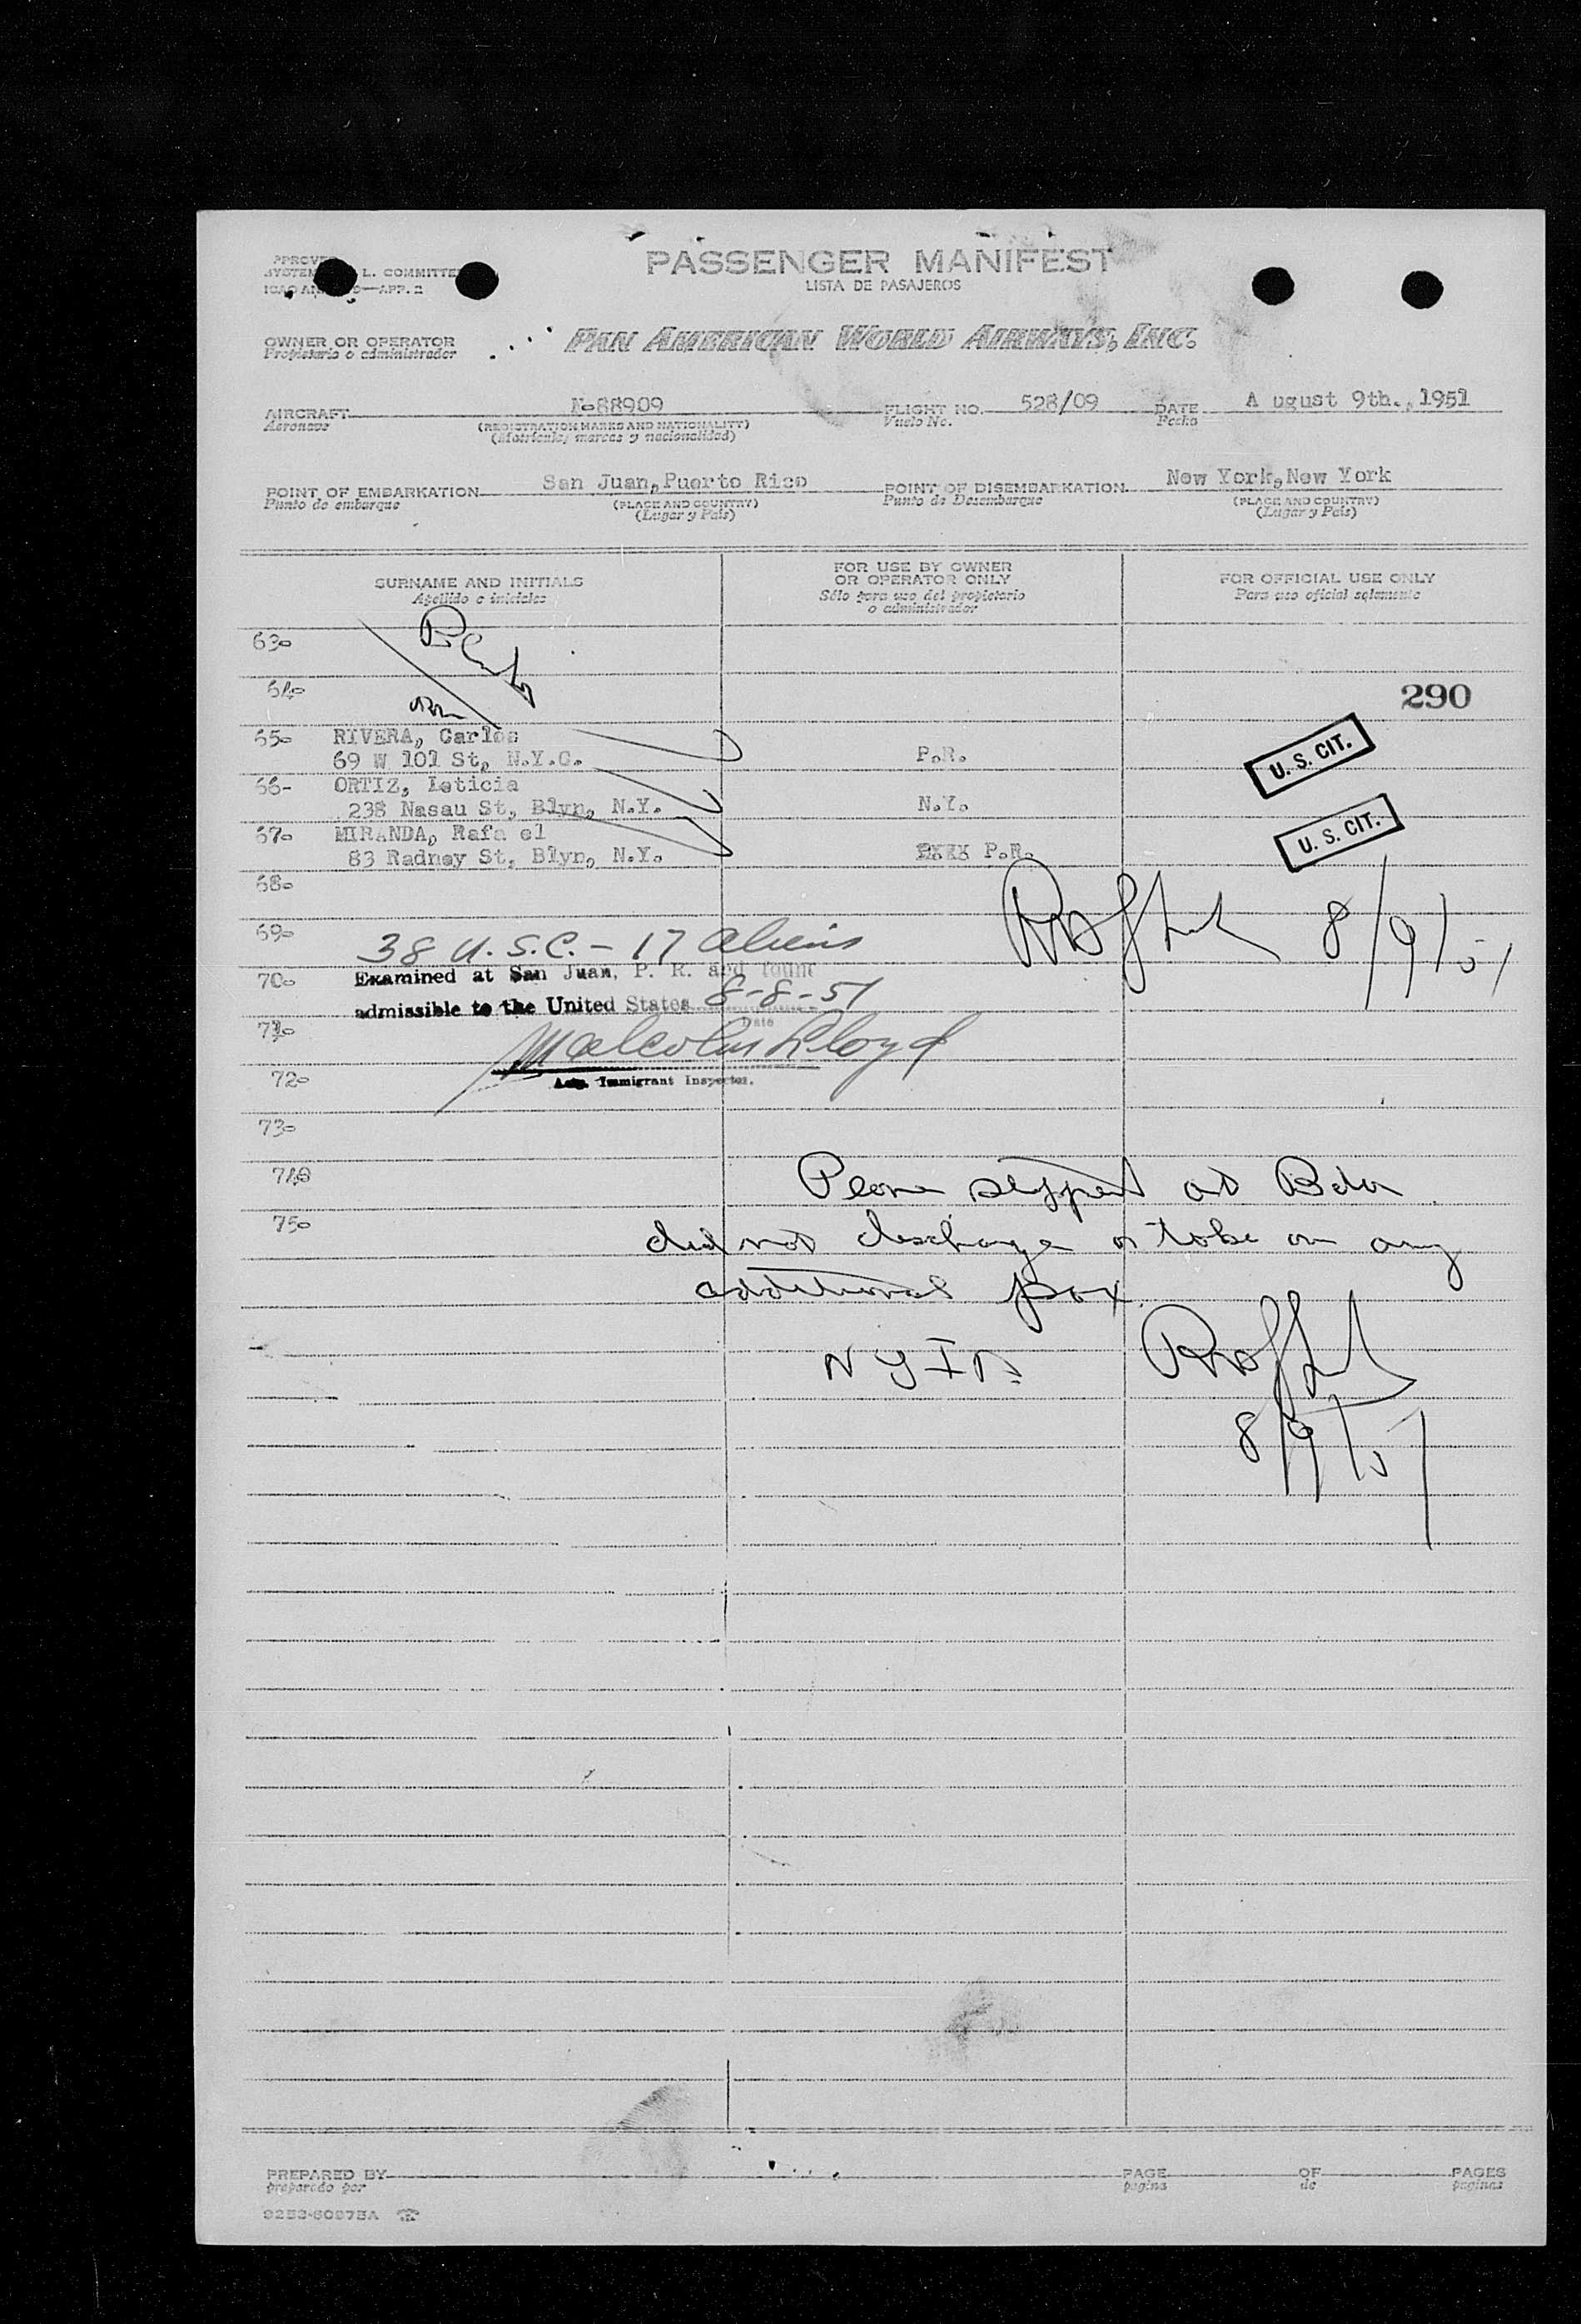 PASSENGER MANIFEST
LISTA DE PASAJEROS
L. COMMITTEE
APP. 2
OWNER OR OPERATOR
Propietario o administrador
PAN AMERICAN WORLD AIRWAYS, INC.
AIRCRAFT N-88909 FLIGHT NO. 528/09 DATE A ugust 9th., 1951
Aeronave (REGISTRATION MARKS AND NATIONALITY) Vuelo No. Fecha
(Matricula, marcas y nacionalidad)
POINT OF EMBARKATION San Juan, Puerto Rico POINT OF DISEMBARKATION New York, New York
Punto de embarque (PLACE AND COUNTRY) Punto de Desembarque (PLACE AND COUNTRY)
(Lugar y País) (Lugar y País)
SURNAME AND INITIALS FOR USE BY OWNER OR OPERATOR ONLY FOR OFFICIAL USE ONLY
Apellido e iniciales Sólo para uso del propietario o administrador Para uso oficial solamente
63-
64-
290
65- RIVERA, Carlos
69 W 101 St, N.Y.C. P.R. U. S. CIT.
66- ORTIZ, Leticia
238 Nasau St, Blyn, N.Y. N.Y.
67- MIRANDA, Rafa el U. S. CIT.
83 Radney St, Blyn, N.Y. P.R.
68-
8/9/51
69- 38 U.S.C. - 17 aliens
70- Examined at San Juan, P. R. and found
admissible to the United States 8-8-51
Date
71- Malcolm Lloyd
72- Actg. Immigrant Inspector.
73-
74- Plane stopped at Bda
75- did not discharge or take on any
additional pax.
NYIA
8/9/51
PREPARED BY PAGE OF PAGES
preparado por pagina de paginas